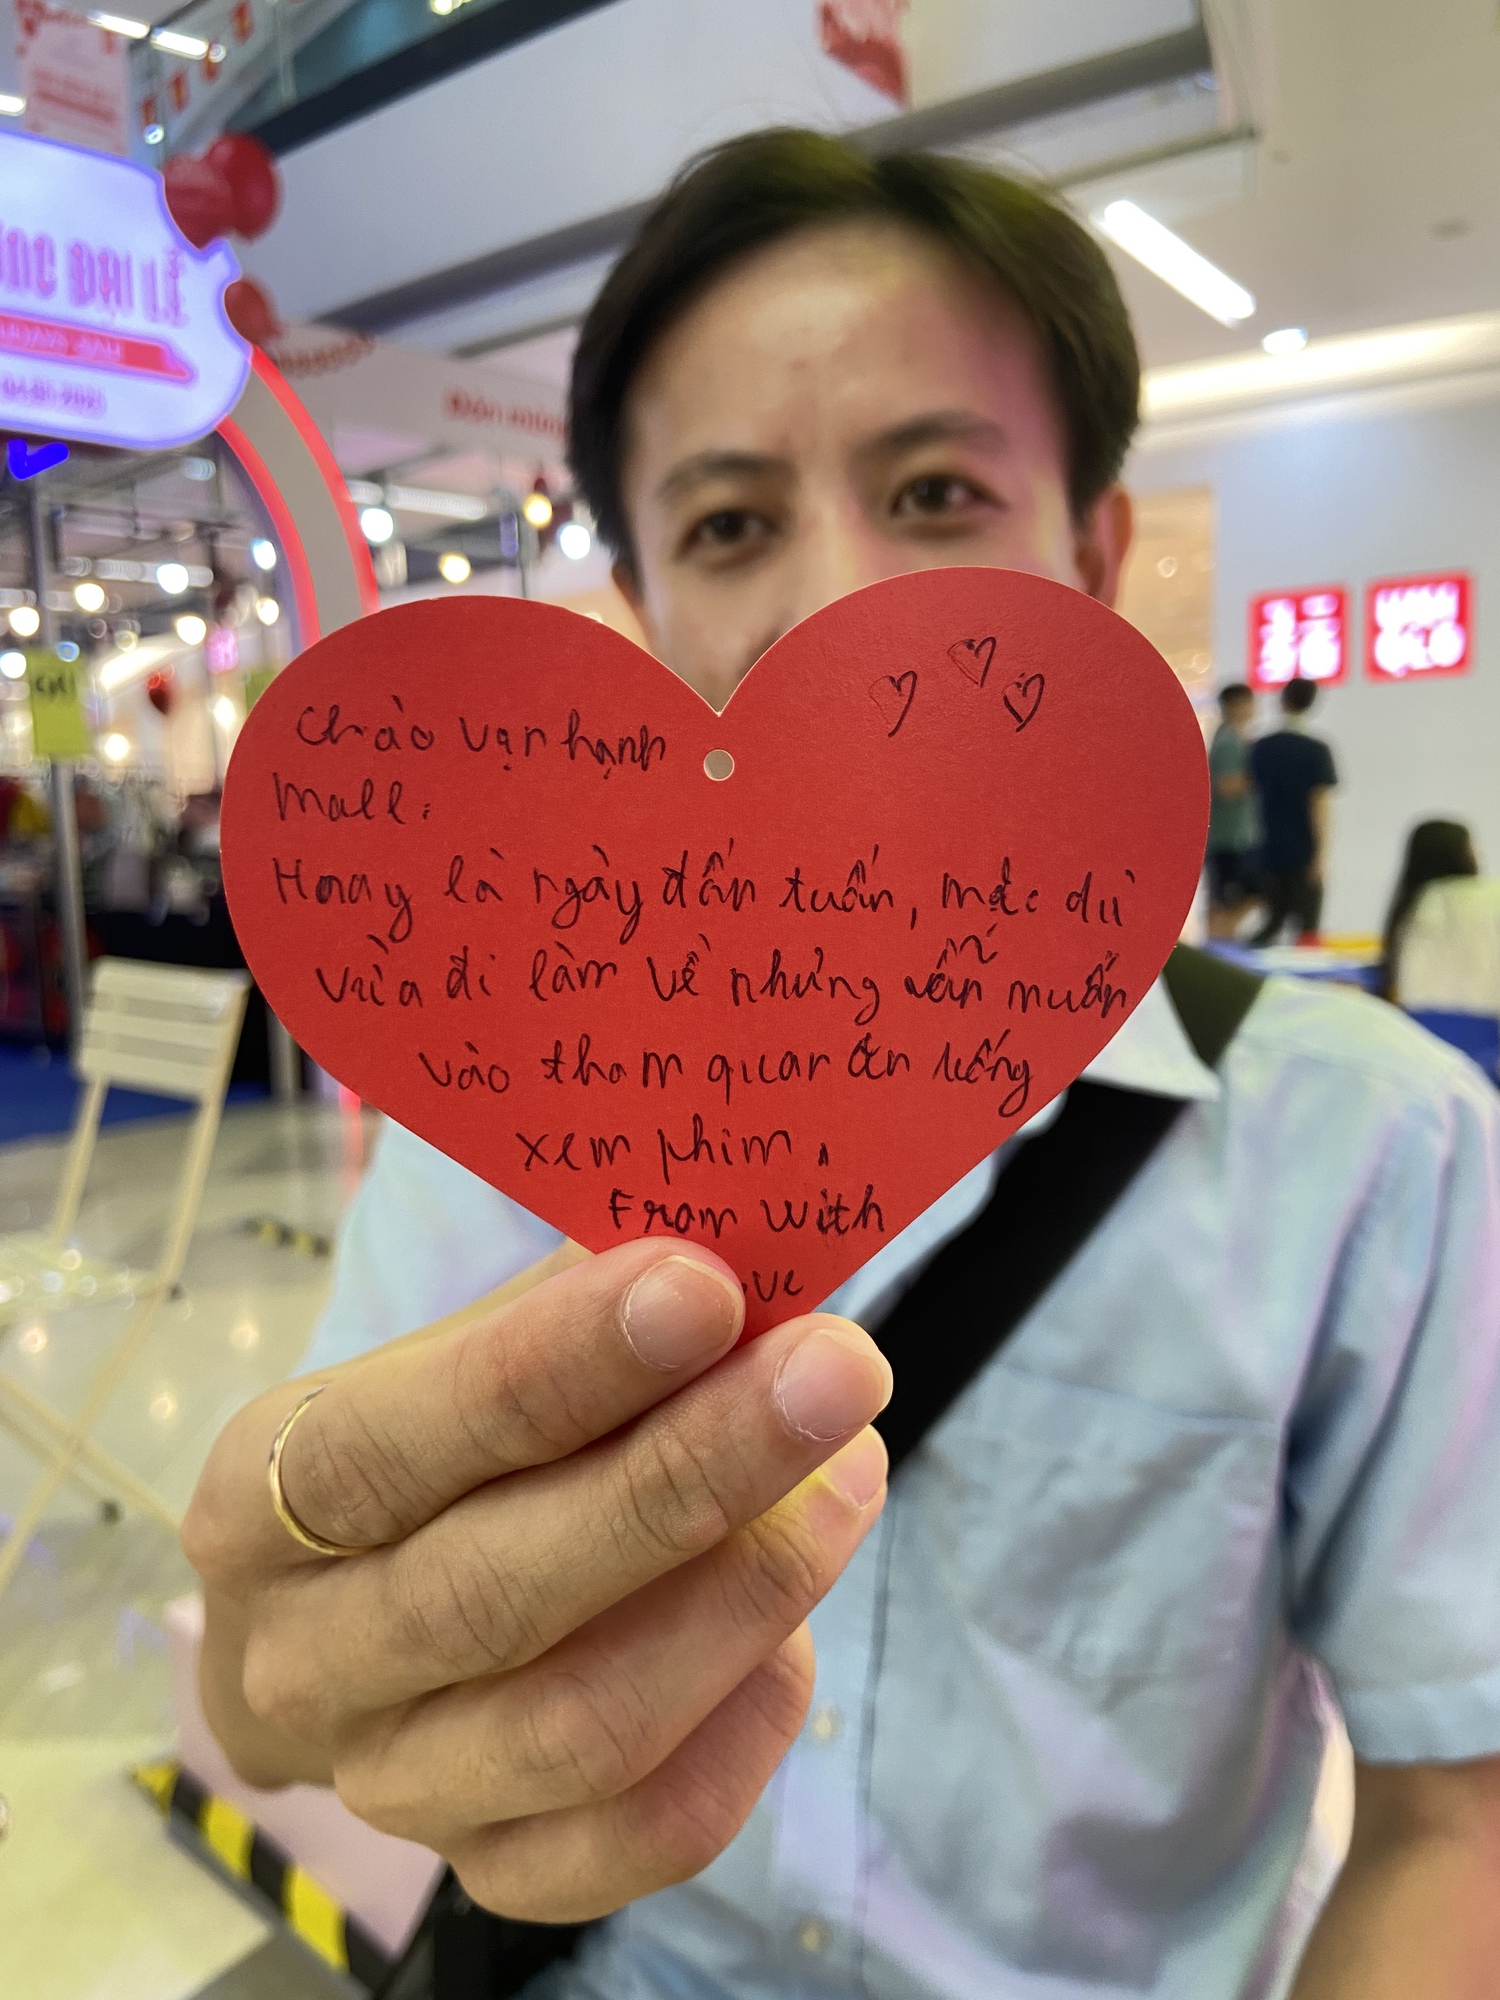 ĐẠI LỄ
Chào Vạn hạnh
Mall:
Hnay là ngày đấn tuấn, mặc dù
Vừa đi làm về nhưng vẫn muấn
vào tham quan ăn uống
xem phim.
From With